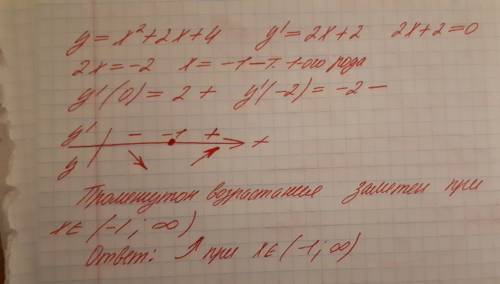 y = x² + 2x + 4 y' = 2x + 2 2x + 2 = 0
2x = -2 x = -1 - т. 1-ого рода
y'(0) = 2 + y'(-2) = -2 -
y' - -1 + x
y
Промежуток возрастания заметен при
x∈(-1; ∞)
Ответ: ↑ при x∈(-1; ∞)